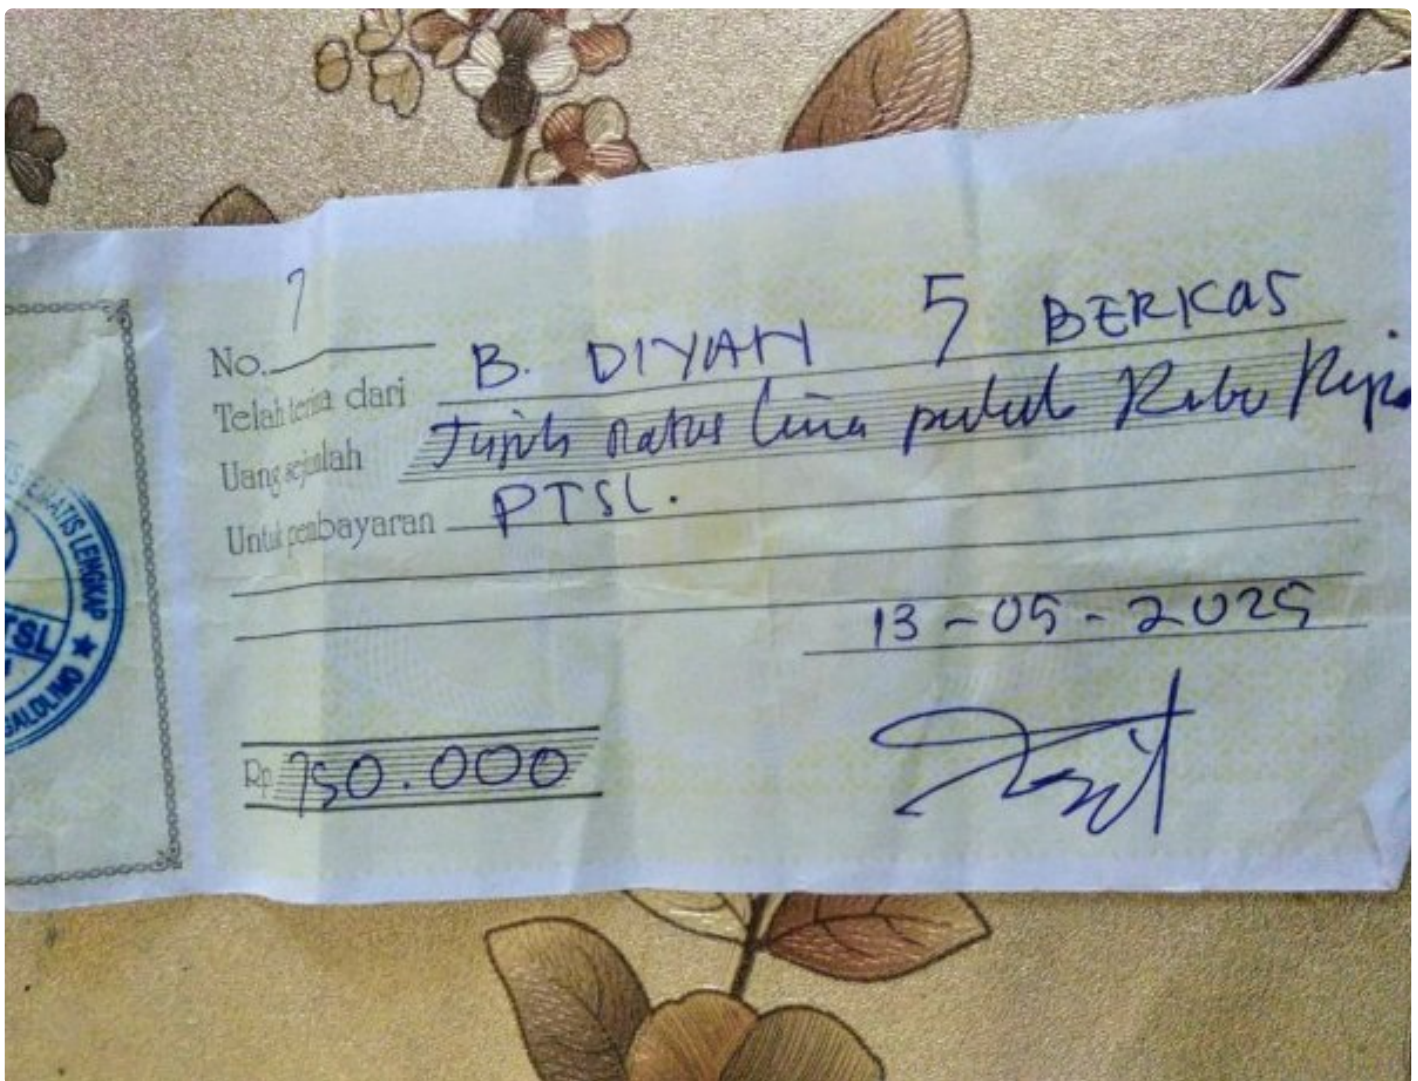 No. 7
Telah terima dari B. DIYAH 5 BERKAS
Uang sejumlah Tujuh Ratus lima puluh Ribu Rupia
Untuk pembayaran PTSL.
13-05-2025
Rp 750.000
EMATIS LENGKAP ★
TSL
GALDLIMO